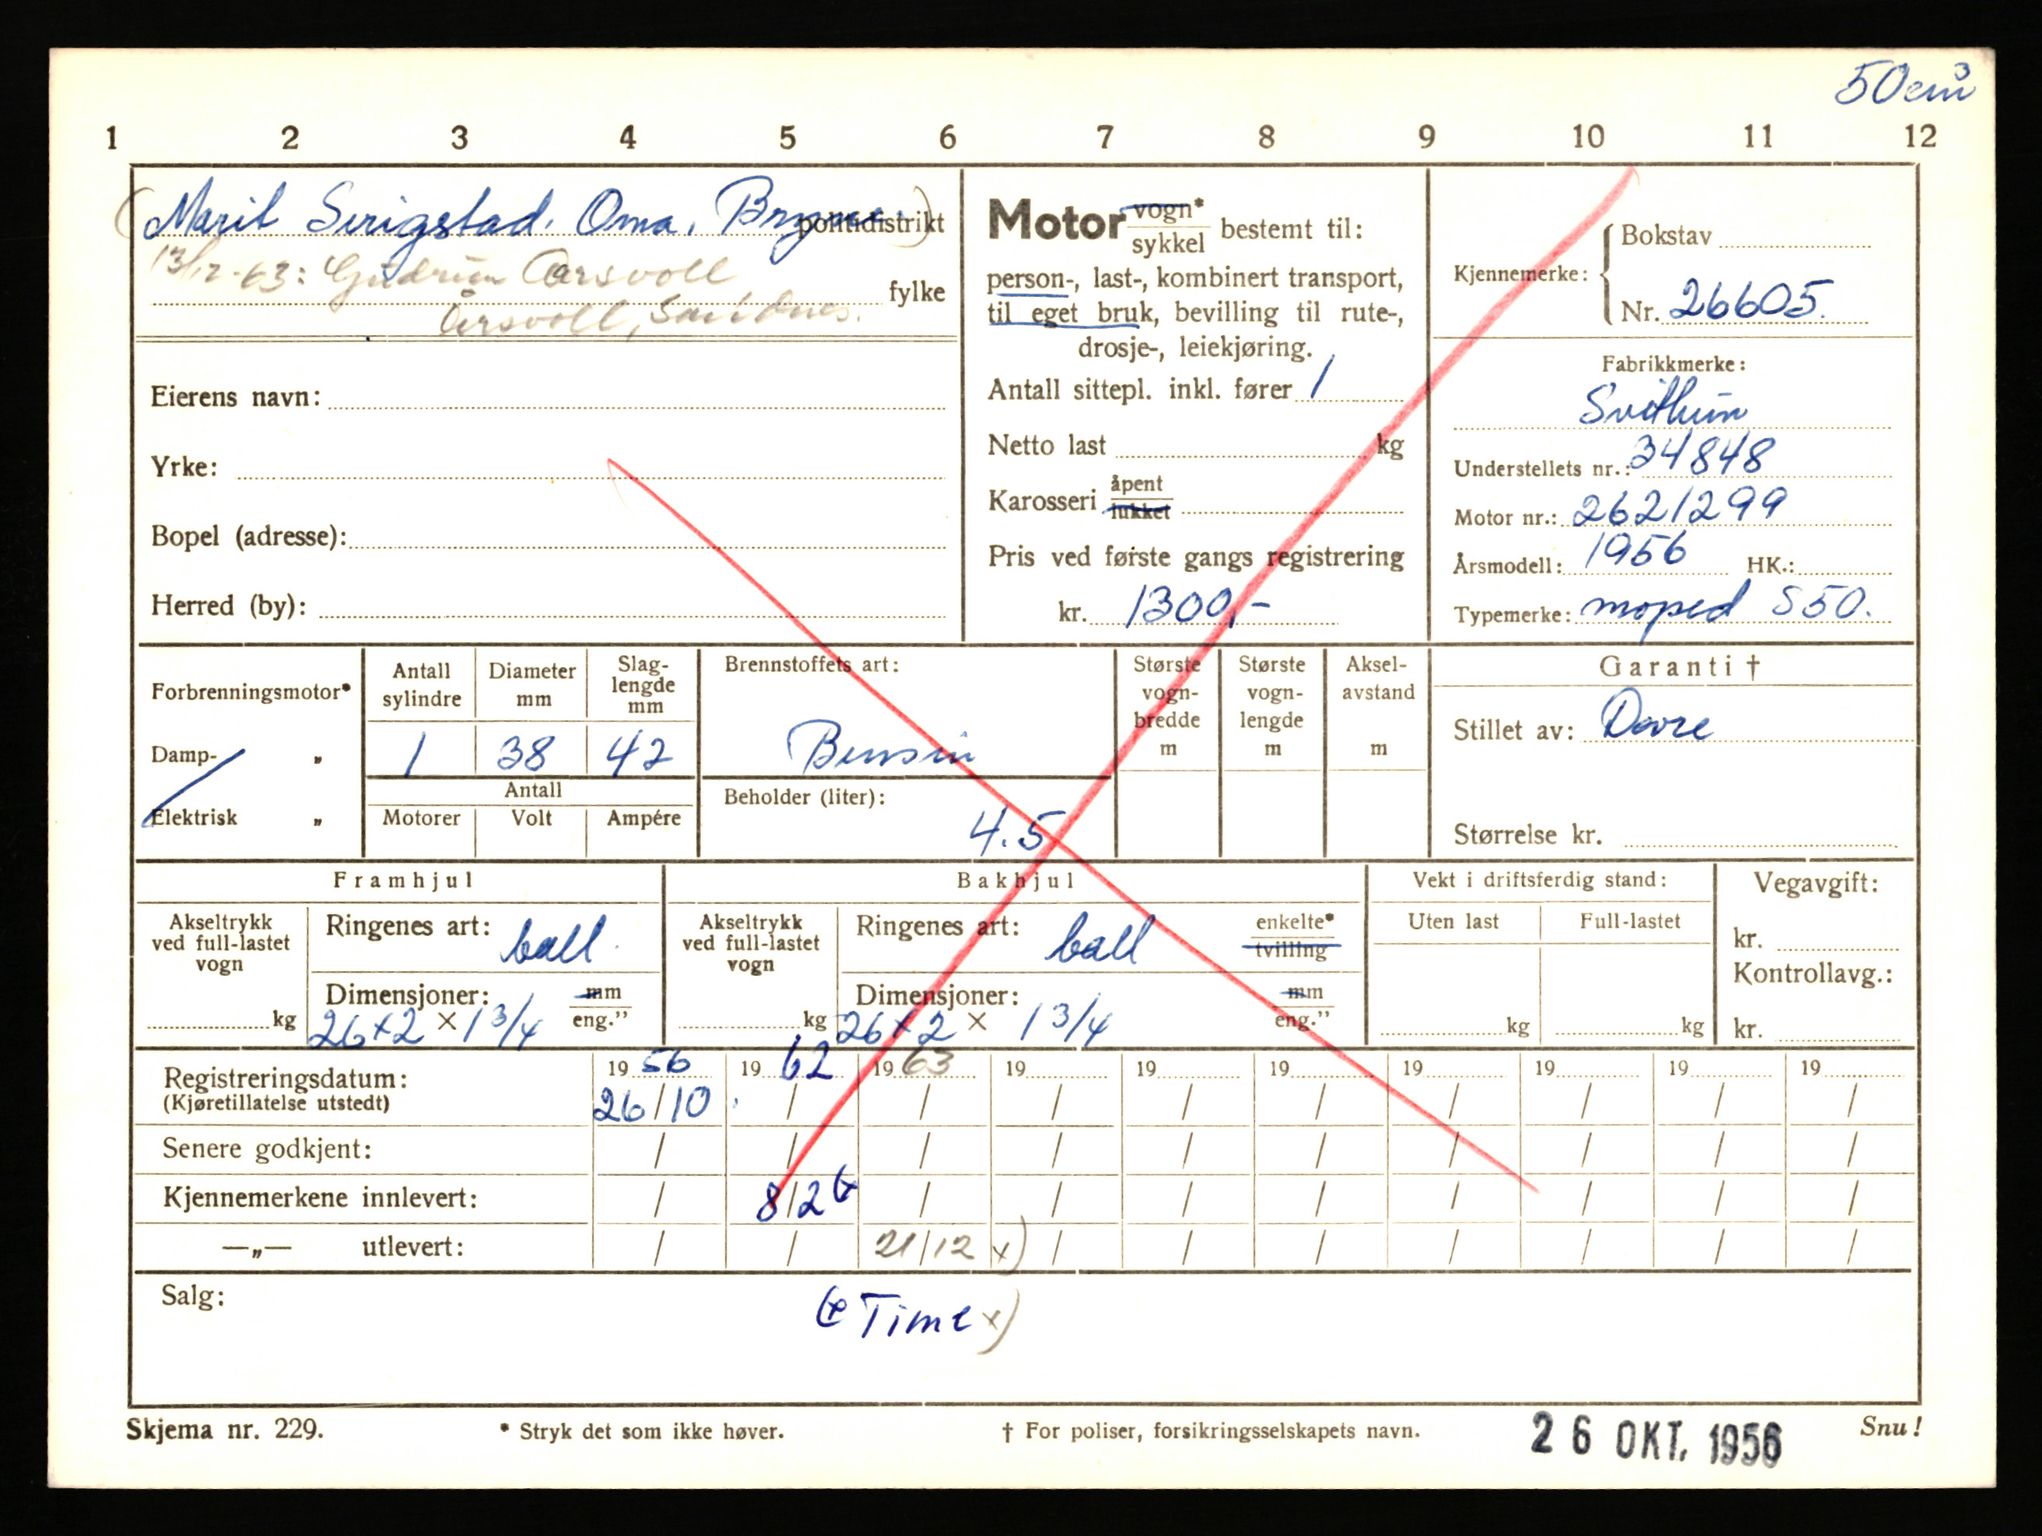 50 cm³
1 2 3 4 5 6 7 8 9 10 11 12
(Marit Serigstad. Oma, Bryne.) politidistrikt
13/12-63: Gudrun Aarsvoll, fylke
Årsvoll, Sandnes.
Eierens navn:
Yrke:
Bopel (adresse):
Herred (by):
Motor vogn* / sykkel bestemt til:
person-, last-, kombinert transport,
til eget bruk, bevilling til rute-,
drosje-, leiekjøring.
Antall sittepl. inkl. fører 1
Netto last kg
Karosseri åpent / lukket
Pris ved første gangs registrering
kr. 1300,-
Kjennemerke: Bokstav
Nr. 26605.
Fabrikkmerke:
Svithun
Understellets nr.: 34848
Motor nr.: 2621299
Årsmodell: 1956 HK.:
Typemerke: moped S50.
Forbrenningsmotor*
Damp- „
Elektrisk „
Antall sylindre Diameter mm Slaglengde mm
1 38 42
Antall
Motorer Volt Ampére
Brennstoffets art:
Bensin
Beholder (liter):
4.5
Største vogn-bredde m
Største vogn-lengde m
Aksel-avstand m
Garanti †
Stillet av: Dovre
Størrelse kr.
Framhjul
Akseltrykk ved full-lastet vogn
kg
Ringenes art: ball
Dimensjoner: mm / eng."
26 x 2 x 1 3/4
Bakhjul
Akseltrykk ved full-lastet vogn
kg
Ringenes art: ball enkelte* / tvilling
Dimensjoner: mm / eng."
26 x 2 x 1 3/4
Vekt i driftsferdig stand:
Uten last Full-lastet
kg kg
Vegavgift:
kr.
Kontrollavg.:
kr.
Registreringsdatum: 19 56 19 62 19 63 19 19 19 19 19 19 19
(Kjøretillatelse utstedt) 26/10 / / / / / / / / /
Senere godkjent: / / / / / / / / / /
Kjennemerkene innlevert: / 8/2 (x / / / / / / / /
—„— utlevert: / / 21/12 x) / / / / / / /
Salg:
(x Time x)
Skjema nr. 229. * Stryk det som ikke høver. † For poliser, forsikringsselskapets navn. 26 OKT. 1956 Snu!